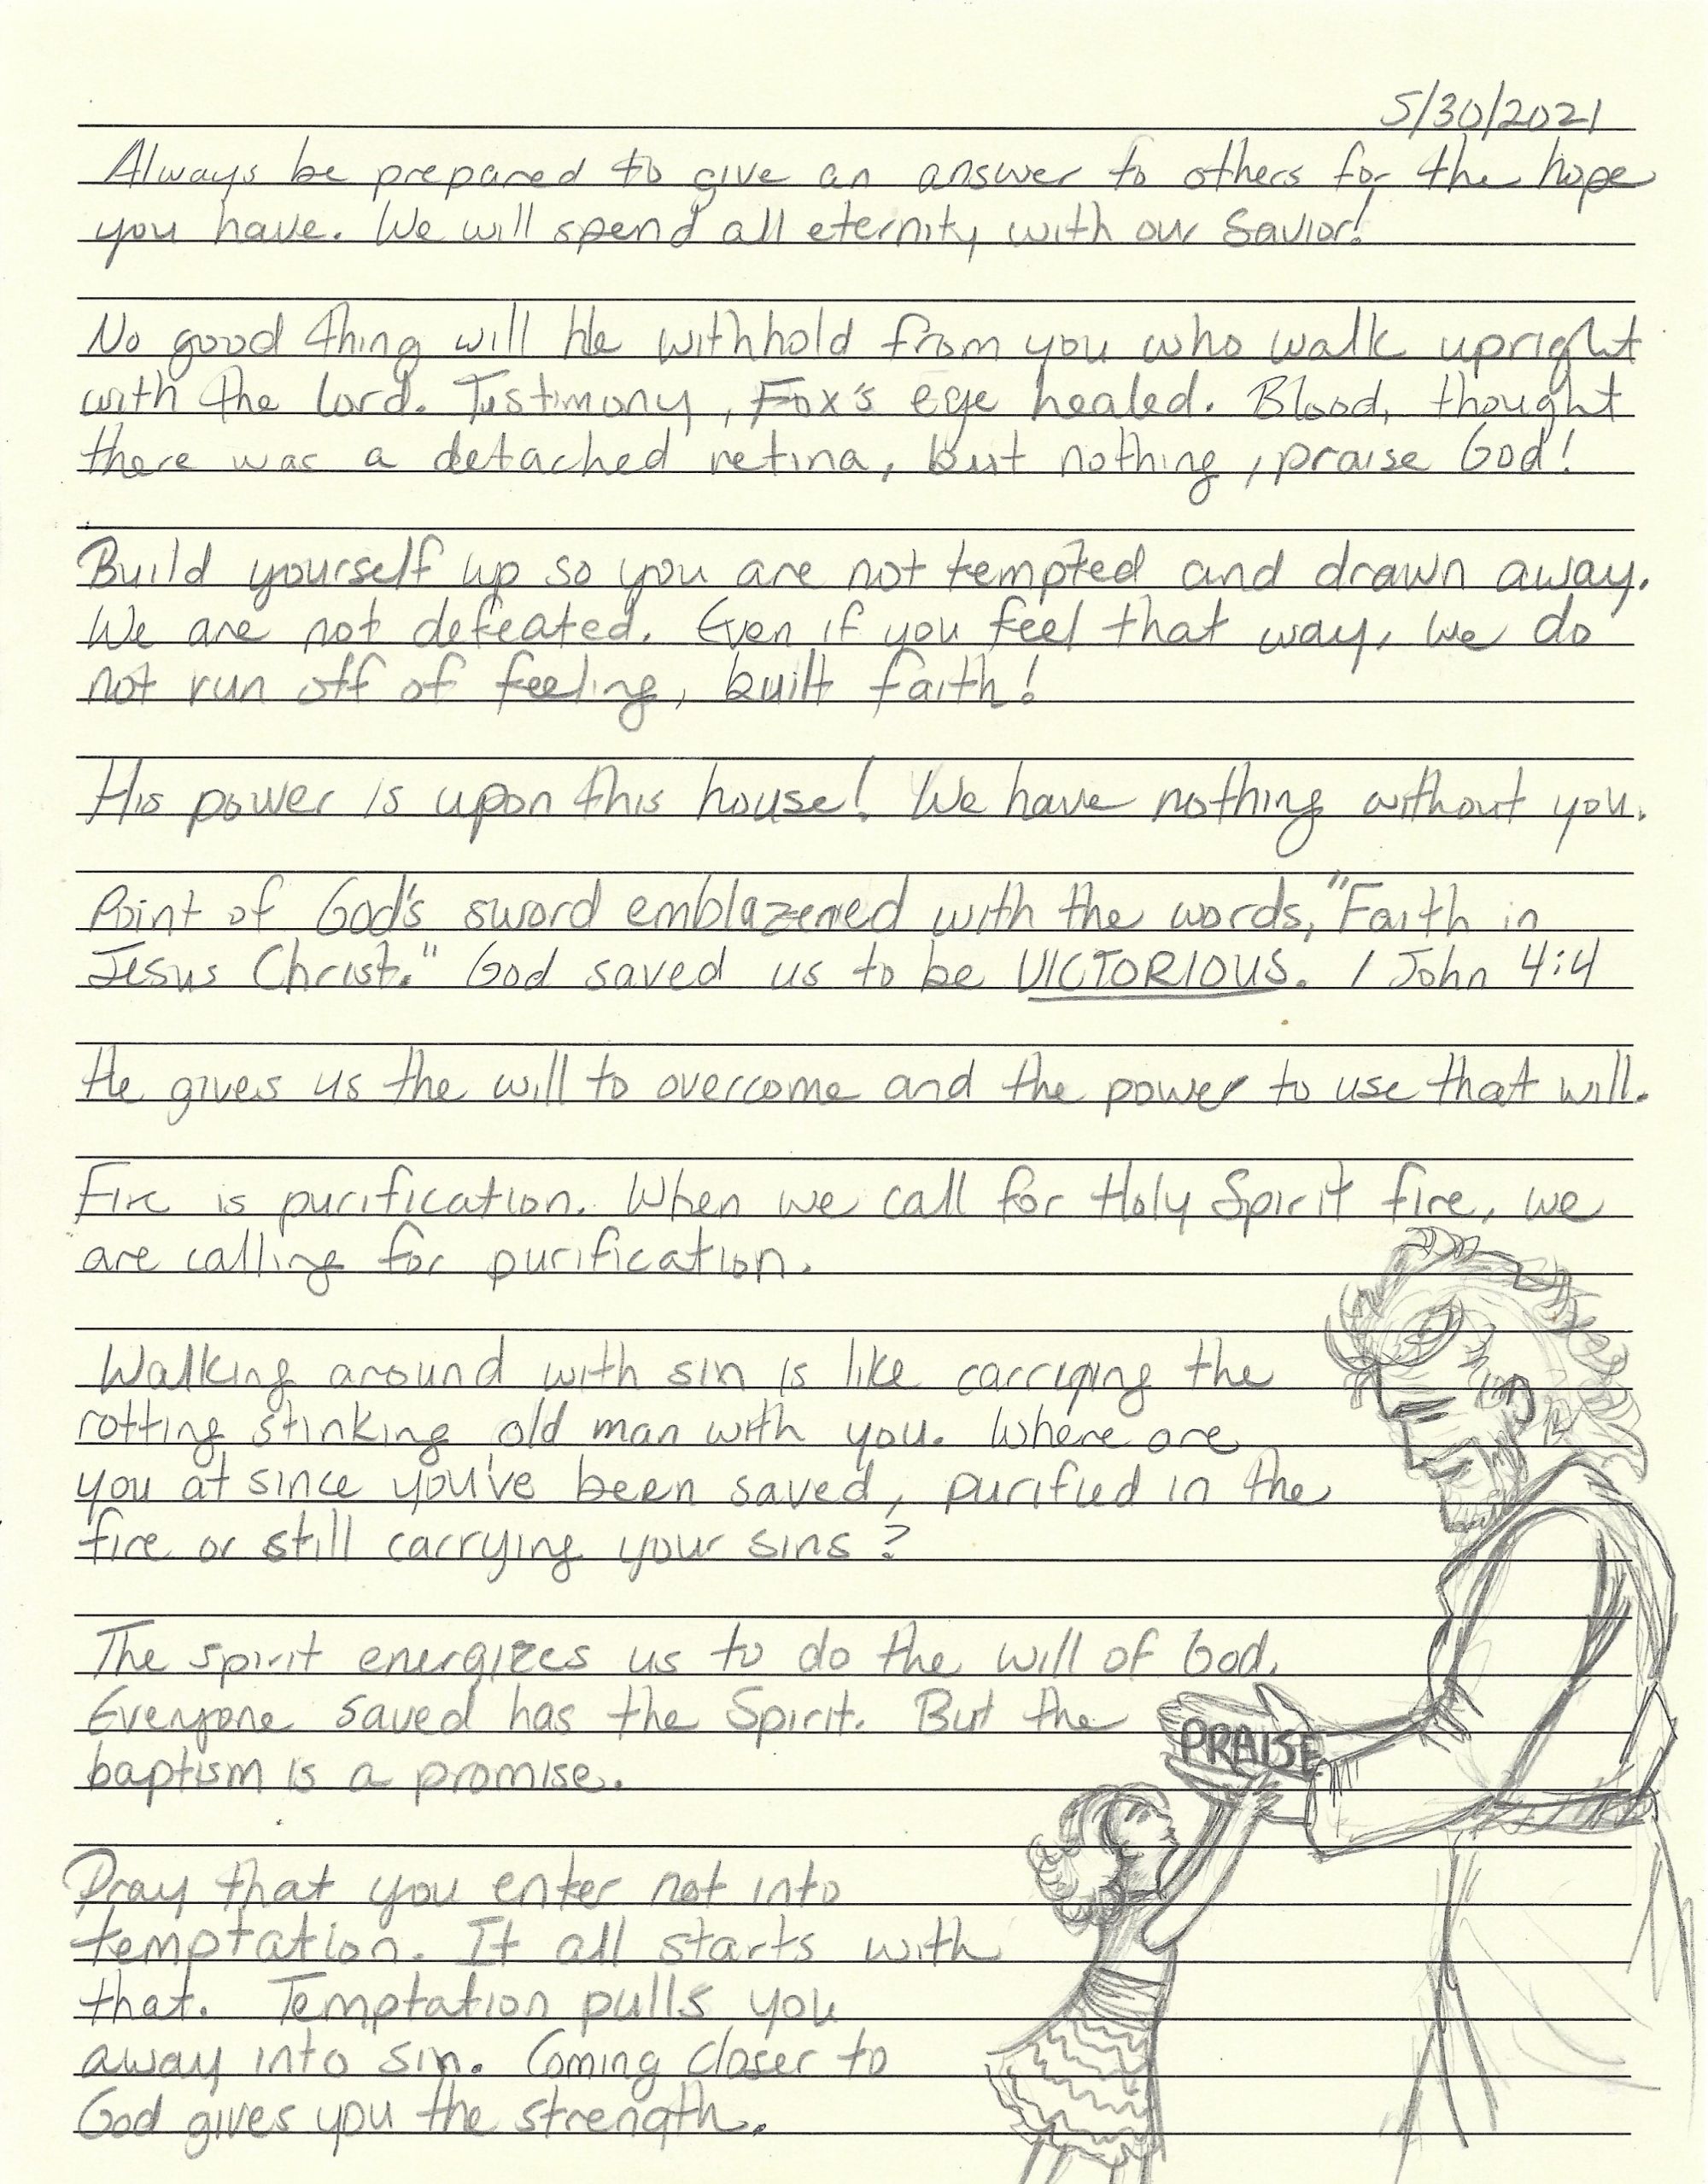 5/30/2021
Always be prepared to give an answer to others for the hope
you have. We will spend all eternity with our Savior!
No good thing will He withhold from you who walk upright
with the lord. Testimony, Fox's eye healed. Blood, thought
there was a detached retina, but nothing, praise God!
Build yourself up so you are not tempted and drawn away.
We are not defeated. Even if you feel that way, we do
not run off of feeling, built faith!
His power is upon this house! We have nothing without you.
Point of God's sword emblazened with the words, "Faith in
Jesus Christ." God saved us to be VICTORIOUS. 1 John 4:4
He gives us the will to overcome and the power to use that will.
Fire is purification. When we call for Holy Spirit fire, we
are calling for purification.
Walking around with sin is like carrying the
rotting stinking old man with you. Where are
you at since you've been saved, purified in the
fire or still carrying your sins?
The spirit energizes us to do the will of God.
Everyone saved has the Spirit. But the
baptism is a promise.
PRAISE
Pray that you enter not into
temptation. It all starts with
that. Temptation pulls you
away into sin. Coming closer to
God gives you the strength.